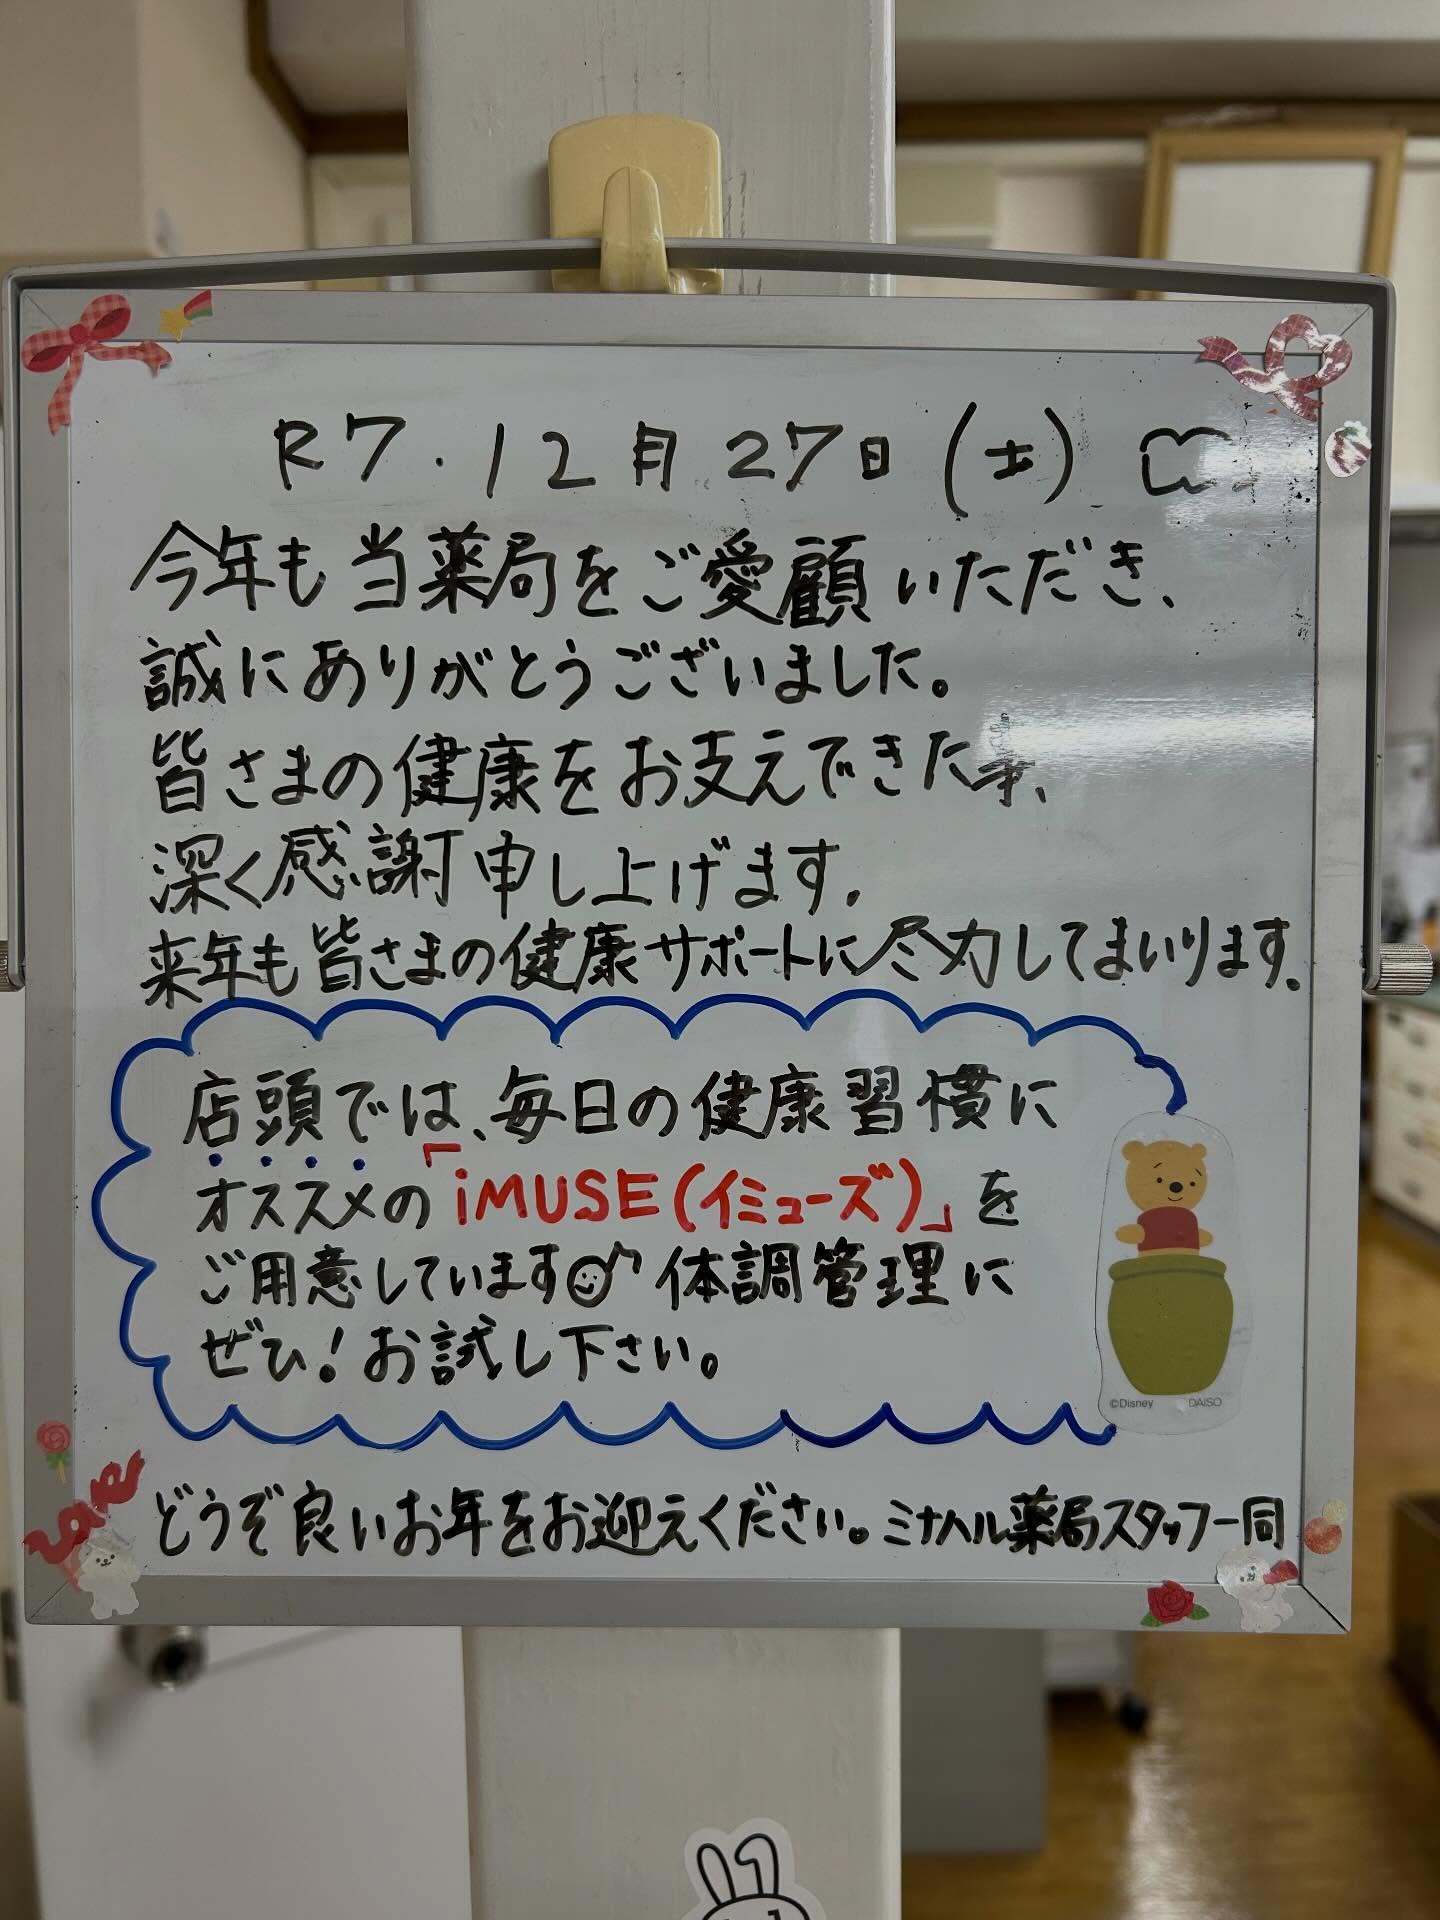 R7.12月27日(土)
今年も当薬局をご愛顧いただき、
誠にありがとうございました。
皆さまの健康をお支えできた事、
深く感謝申し上げます。
来年も皆さまの健康サポートに尽力してまいります。
店頭では、毎日の健康習慣に
オススメの「iMUSE(イミューズ)」を
ご用意しています 体調管理に
ぜひ!お試し下さい。
©Disney DAISO
どうぞ良いお年をお迎えください。ミナハル薬局スタッフ一同
Love